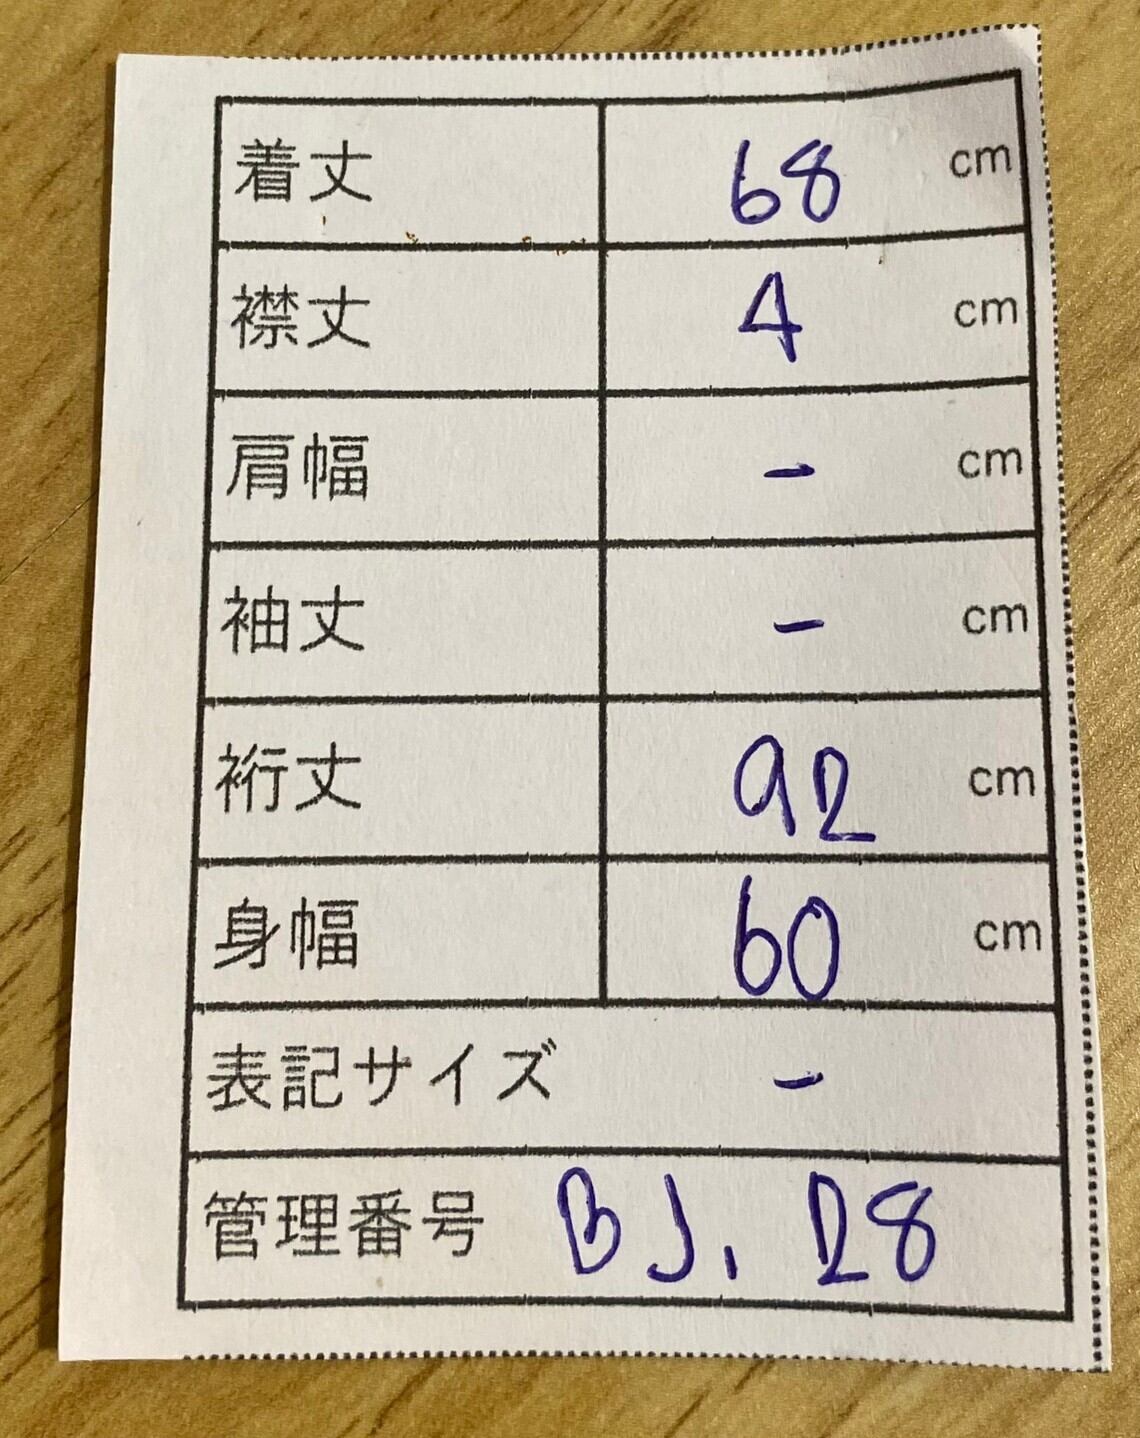 着丈 68 cm
襟丈 4 cm
肩幅 - cm
袖丈 - cm
裄丈 92 cm
身幅 60 cm
表記サイズ -
管理番号 BJ. 28